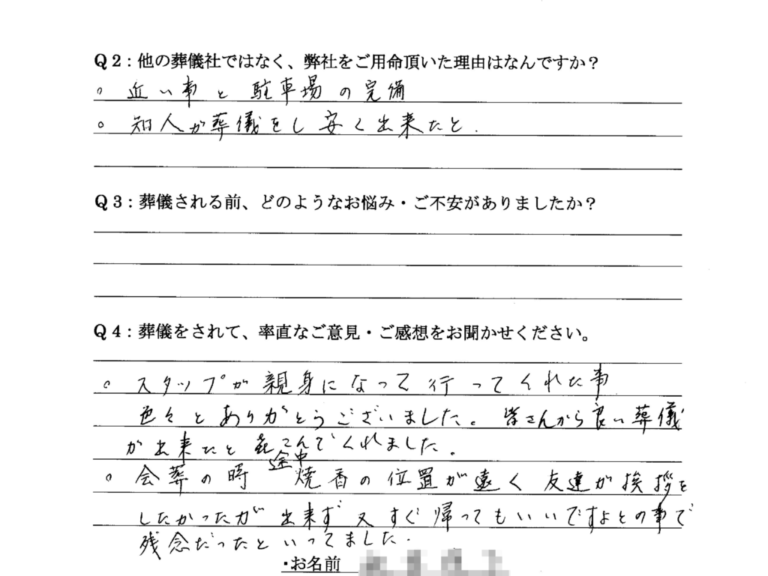 Q2：他の葬儀社ではなく、弊社をご用命頂いた理由はなんですか？
○ 近い事と駐車場の完備
○ 知人が葬儀をし安く出来たと.
Q3：葬儀される前、どのようなお悩み・ご不安がありましたか？
Q4：葬儀をされて、率直なご意見・ご感想をお聞かせください。
○ スタップが親身になって行ってくれた事
色々とありがとうございました。皆さんから良い葬儀
が出来たと㐂こんでくれました。
途中
○ 会葬の時 焼香の位置が遠く友達が挨拶を
したかったが出来ず又すぐ帰ってもいいですよとの事で
残念だったといってました.
・お名前